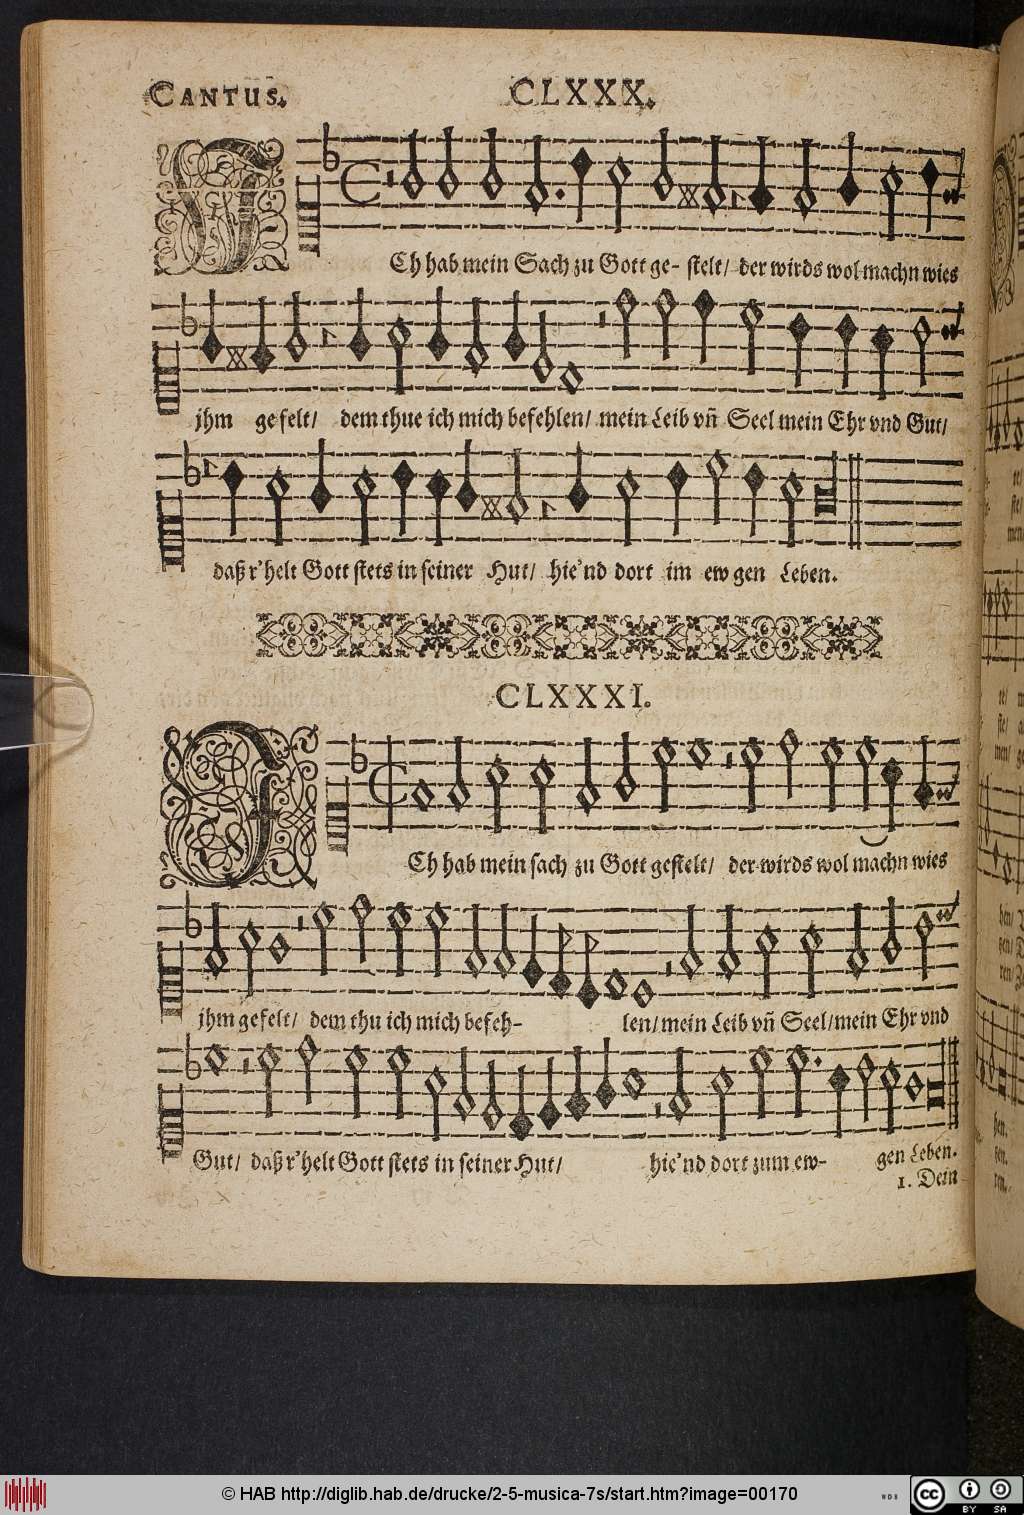 CANTUS. CLXXX.
ICh hab mein Sach zu Gott ge- stelt/ der wirds wol machn wies
jhm gefelt/ dem thue ich mich befehlen/ mein Leib vñ Seel mein Ehr vnd Gut/
daß r'helt Gott stets in seiner Hut/ hie'nd dort im ewgen Leben.
CLXXXI.
ICh hab mein sach zu Gott gestelt/ der wirds wol machn wies
jhm gefelt/ dem thu ich mich befeh- len/ mein Leib vñ Seel/ mein Ehr vnd
Gut/ daß r'helt Gott stets in seiner Hut/ hie'nd dort zum ew- gen Leben.
1. Dein
© HAB http://diglib.hab.de/drucke/2-5-musica-7s/start.htm?image=00170
WDB
cc BY SA